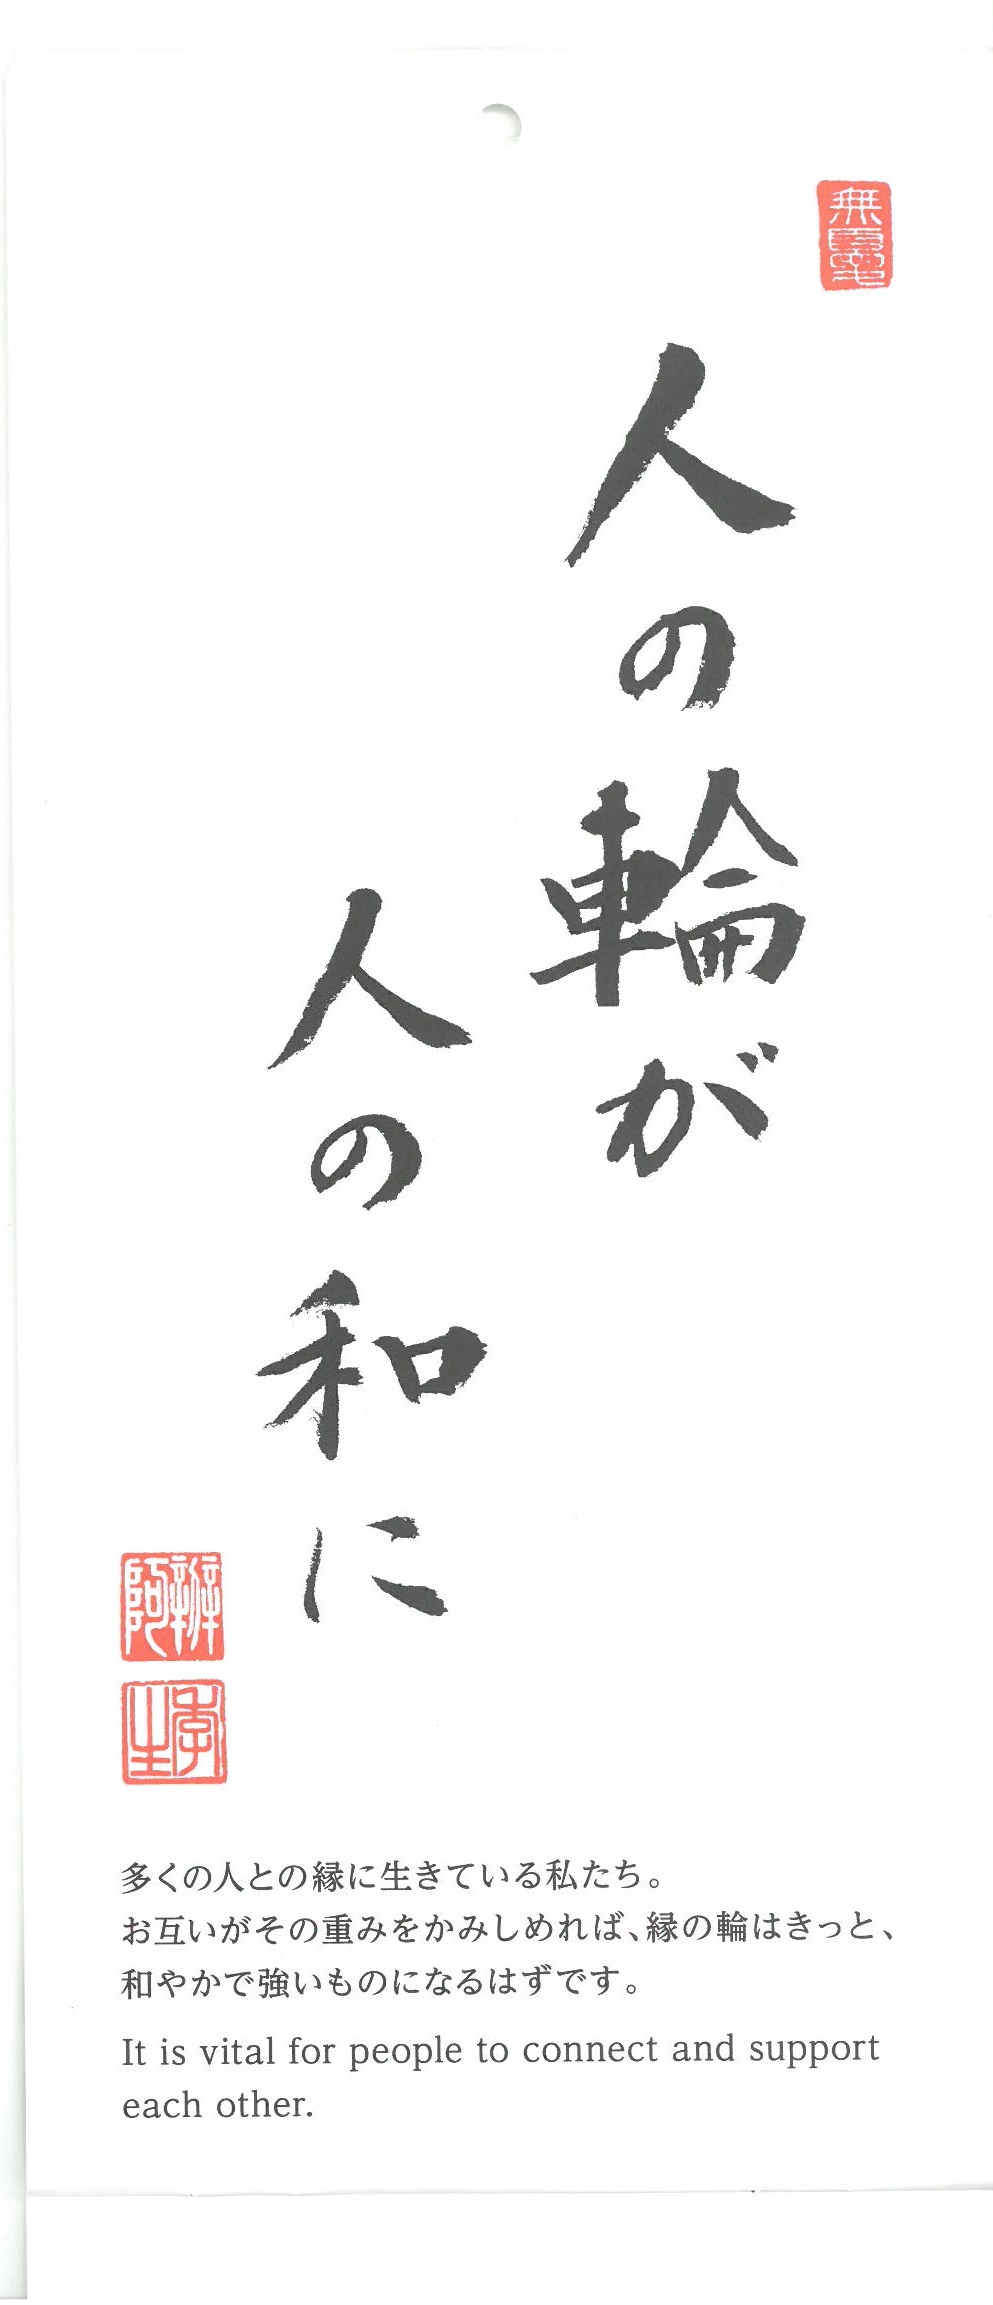 人の輪が
人の和に
多くの人との縁に生きている私たち。
お互いがその重みをかみしめれば、縁の輪はきっと、
和やかで強いものになるはずです。
It is vital for people to connect and support
each other.